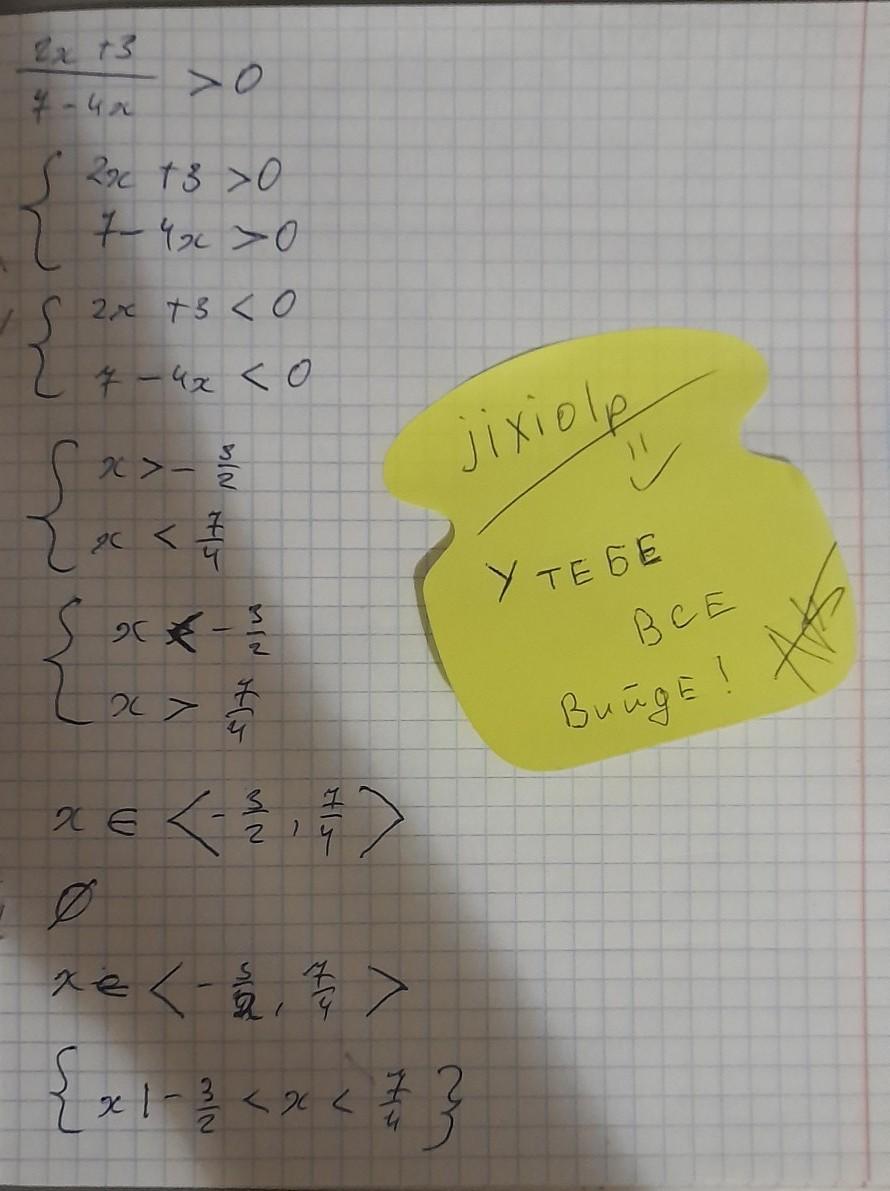 2x + 3
7 - 4x > 0
{ 2x + 3 > 0
7 - 4x > 0
{ 2x + 3 < 0
7 - 4x < 0
{ x > - 3/2
x < 7/4
{ x < - 3/2
x > 7/4
x ∈ < - 3/2 , 7/4 >
∅
x ∈ < - 3/2 , 7/4 >
{ x | - 3/2 < x < 7/4 }
jixiolp
У ТЕБЕ
ВСЕ
ВийдЕ!